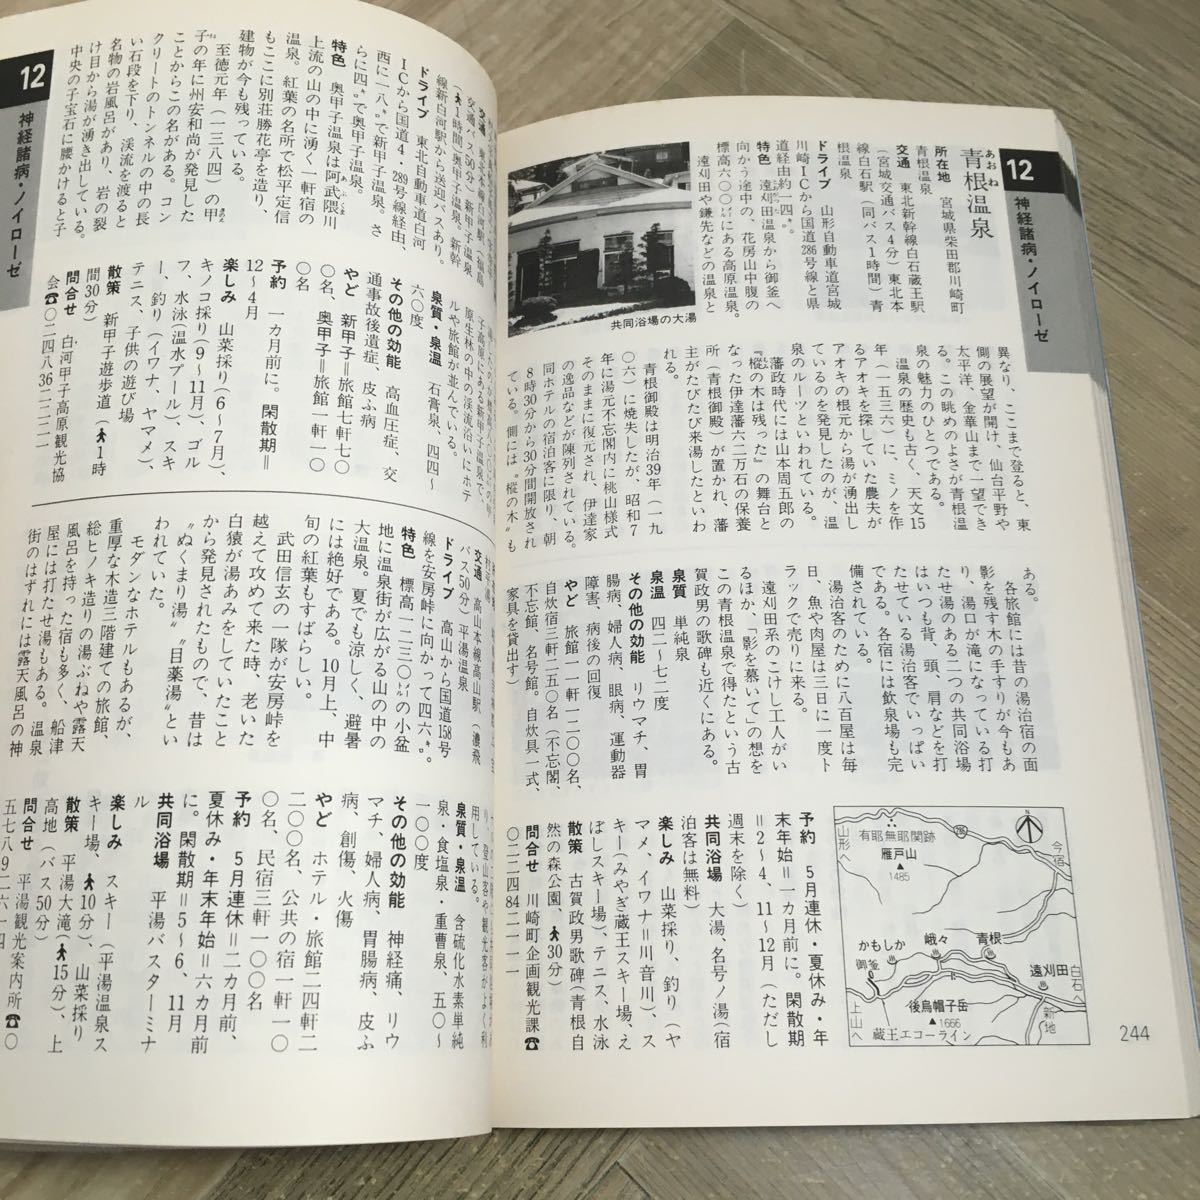 12
神経諸病・ノイローゼ
青根温泉
あおね
所在地　宮城県柴田郡川崎町
青根温泉
交通　東北新幹線白石蔵王駅
（宮城交通バス4分）東北本
線白石駅（同バス1時間）青
根温泉
ドライブ　山形自動車道宮城
川崎ICから国道286号線と県
道経由約一四㌔。
特色　遠刈田温泉から御釜へ
向かう途中の、花房山中腹の
標高六〇〇㍍にある高原温泉。
遠刈田や鎌先などの温泉と
共同浴場の大湯
異なり、ここまで登ると、東
側の展望が開け、仙台平野や
太平洋、金華山まで一望でき
る。この眺めのよさが青根温
泉の魅力のひとつである。
温泉の歴史も古く、天文15
年（一五三六）に、ミノを作
るアオキを探していた農夫が
アオキの根元から湯が湧出し
ているのを発見したのが、温
泉のルーツといわれている。
藩政時代には山本周五郎の
『樅の木は残った』の舞台と
なった伊達藩六二万石の保養
所（青根御殿）が置かれ、藩
主がたびたび来湯したといわ
れる。
青根御殿は明治39年（一九
〇六）に焼失したが、昭和7
年に湯元不忘閣内に桃山様式
そのままに復元され、伊達家
の逸品などが陳列されている。
同ホテルの宿泊客に限り、朝
8時30分から30分間開放され
ている。側には〝樅の木〟も
ある。
各旅館には昔の湯治宿の面
影を残す木の手すりが今もあ
り、湯口が滝になっている打
たせ湯のある二つの共同浴場
はいつも背、頭、肩などを打
たせている湯治客でいっぱい
である。各宿には飲泉場も完
備されている。
湯治客のために八百屋は毎
日、魚や肉屋は三日に一度ト
ラックで売りに来る。
遠刈田系のこけし工人がい
るほか、「影を慕いて」の想を
この青根温泉で得たという古
賀政男の歌碑も近くにある。
泉質　単純泉
泉温　四二〜七二度
その他の効能　リウマチ、胃
腸病、婦人病、眼病、運動器
障害、病後の回復
やど　旅館一軒一二〇〇名、
自炊宿三軒二五〇名（不忘閣、
不忘館、名号館。自炊具一式、
家具を貸出す）
予約　5月連休・夏休み・年
末年始＝一カ月前に。閑散期
＝2〜4、11〜12月（ただし
週末を除く）
共同浴場　大湯、名号ノ湯（宿
泊客は無料）
楽しみ　山菜採り、釣り（ヤ
マメ、イワナ＝川音川）、ス
キー（みやぎ蔵王スキー場、え
ぼしスキー場）、テニス、水泳
散策　古賀政男歌碑（青根自
然の森公園、30分）
問合せ　川崎町企画観光課☎
〇二二四84二一一一
N
山形へ
有耶無耶関跡
雁戸山
▲1485
286
今宿
峩々
青根
かもしか
御釜
遠刈田
白石へ
後烏帽子岳
▲1666
新地
上山へ
蔵王エコーライン
244
12
神経諸病・ノイローゼ
（1時間）奥甲子温泉。新幹
線新白河駅から送迎バスあり。
ドライブ　東北自動車道白河
ICから国道4・289号線経由、
西に一八㌔で新甲子温泉。さ
らに四㌔で奥甲子温泉。
特色　奥甲子温泉は阿武隈川
あぶくま
上流の山の中に湧く一軒宿の
温泉。紅葉の名所で松平定信
もここに別荘勝花亭を造り、
建物が今も残っている。
至徳元年（一三八四）の甲
子の年に州安和尚が発見した
ことからこの名がある。コン
クリートのトンネルの中の長
い石段を下り、渓流を渡ると
名物の岩風呂があり、岩の裂
け目から湯が湧き出している。
中央の子宝石に腰かけると子
子高原にある新甲子温泉で、
原生林の中の渓流沿いにホテ
ルや旅館が並んでいる。
泉質・泉温　石膏泉、四四〜
六〇度
その他の効能　高血圧症、交
通事故後遺症、皮ふ病
やど　新甲子＝旅館七軒七〇
〇名、奥甲子＝旅館一軒一〇
〇名
予約　一カ月前に。閑散期＝
12〜4月
楽しみ　山菜採り（6〜7月）、
キノコ採り（9〜11月）、ゴル
フ、水泳（温水プール）、スキ
ー、釣り（イワナ、ヤマメ）、
テニス、子供の遊び場
散策　新甲子遊歩道（1時
間30分）
問合せ　白河甲子高原観光協
会☎〇二四八36二二二一
交通　高山本線高山駅（濃飛
バス50分）平湯温泉
ドライブ　高山から国道158号
線を安房峠に向かって四六㌔。
特色　標高一二三〇㍍の小盆
地に温泉街が広がる山の中の
大温泉。夏でも涼しく、避暑
には絶好である。10月上、中
旬の紅葉もすばらしい。
武田信玄の一隊が安房峠を
越えて攻めて来た時、老いた
白猿が湯あみをしていたこと
から発見されたもので、昔は
〝ぬくまり湯〟〝目薬湯〟とい
われていた。
モダンなホテルもあるが、
重厚な木造三階建ての旅館、
総ヒノキ造りの湯ぶねや露天
風呂を持った宿も多く、船津
屋には打たせ湯もある。温泉
街のはずれには露天風呂の神
り、登山客や観光客がよく利
用している。
泉質・泉温　含硫化水素単純
泉・食塩泉・重曹泉、五〇〜
一〇〇度
その他の効能　神経痛、リウ
マチ、婦人病、胃腸病、皮ふ
病、創傷、火傷
やど　ホテル・旅館二四軒二
二〇〇名、公共の宿一軒一〇
〇名、民宿三軒一〇〇名
予約　5月連休＝二カ月前、
夏休み・年末年始＝六カ月前
に。閑散期＝5〜6、11月
共同浴場　平湯バスターミナ
ル
楽しみ　スキー（平湯温泉ス
キー場、10分）、山菜採り
散策　平湯大滝（15分）、上
高地（バス50分）
問合せ　平湯観光案内所☎〇